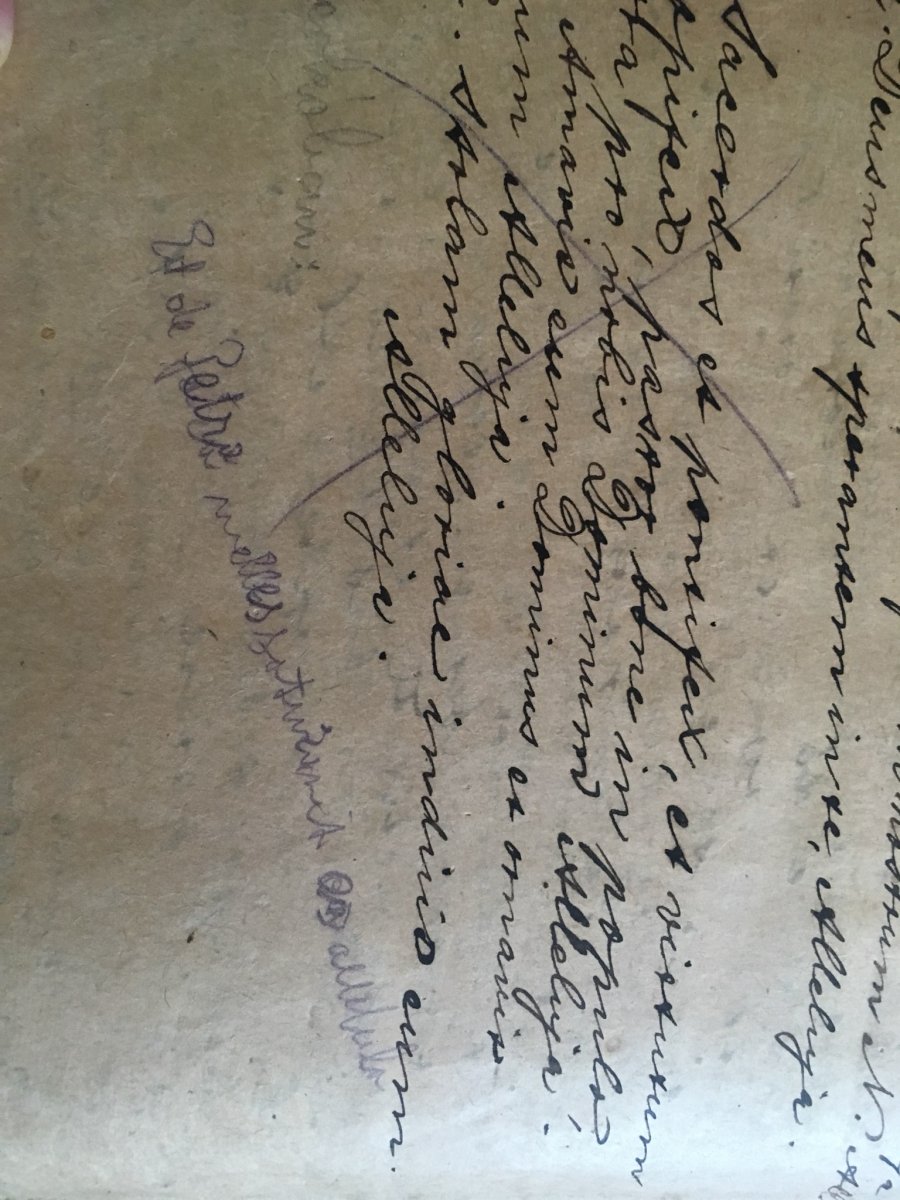 nostrum
. Deus meus sperantem in te, Alleluja.
Sacerdos et pontifex, et virtutum
opifex, pastor bone in populo,
pro nobis Dominum Alleluja.
Amavit eum Dominus et ornavit
eum Alleluja.
Stolam gloriae induit eum.
Alleluja.
Et de Petra